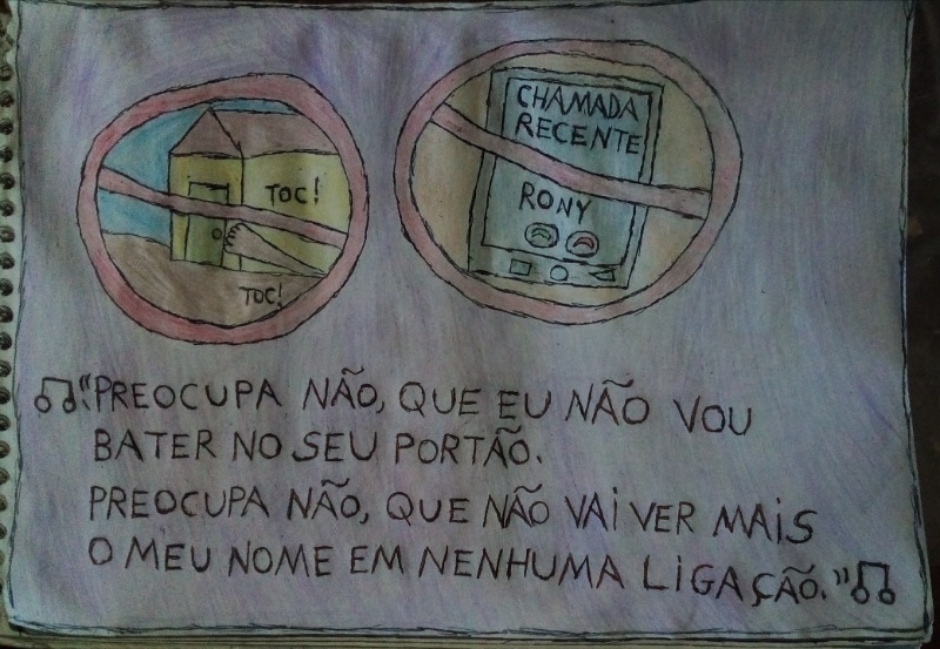 TOC!
TOC!
CHAMADA
RECENTE
RONY
"PREOCUPA NÃO, QUE EU NÃO VOU
BATER NO SEU PORTÃO.
PREOCUPA NÃO, QUE NÃO VAI VER MAIS
O MEU NOME EM NENHUMA LIGAÇÃO."